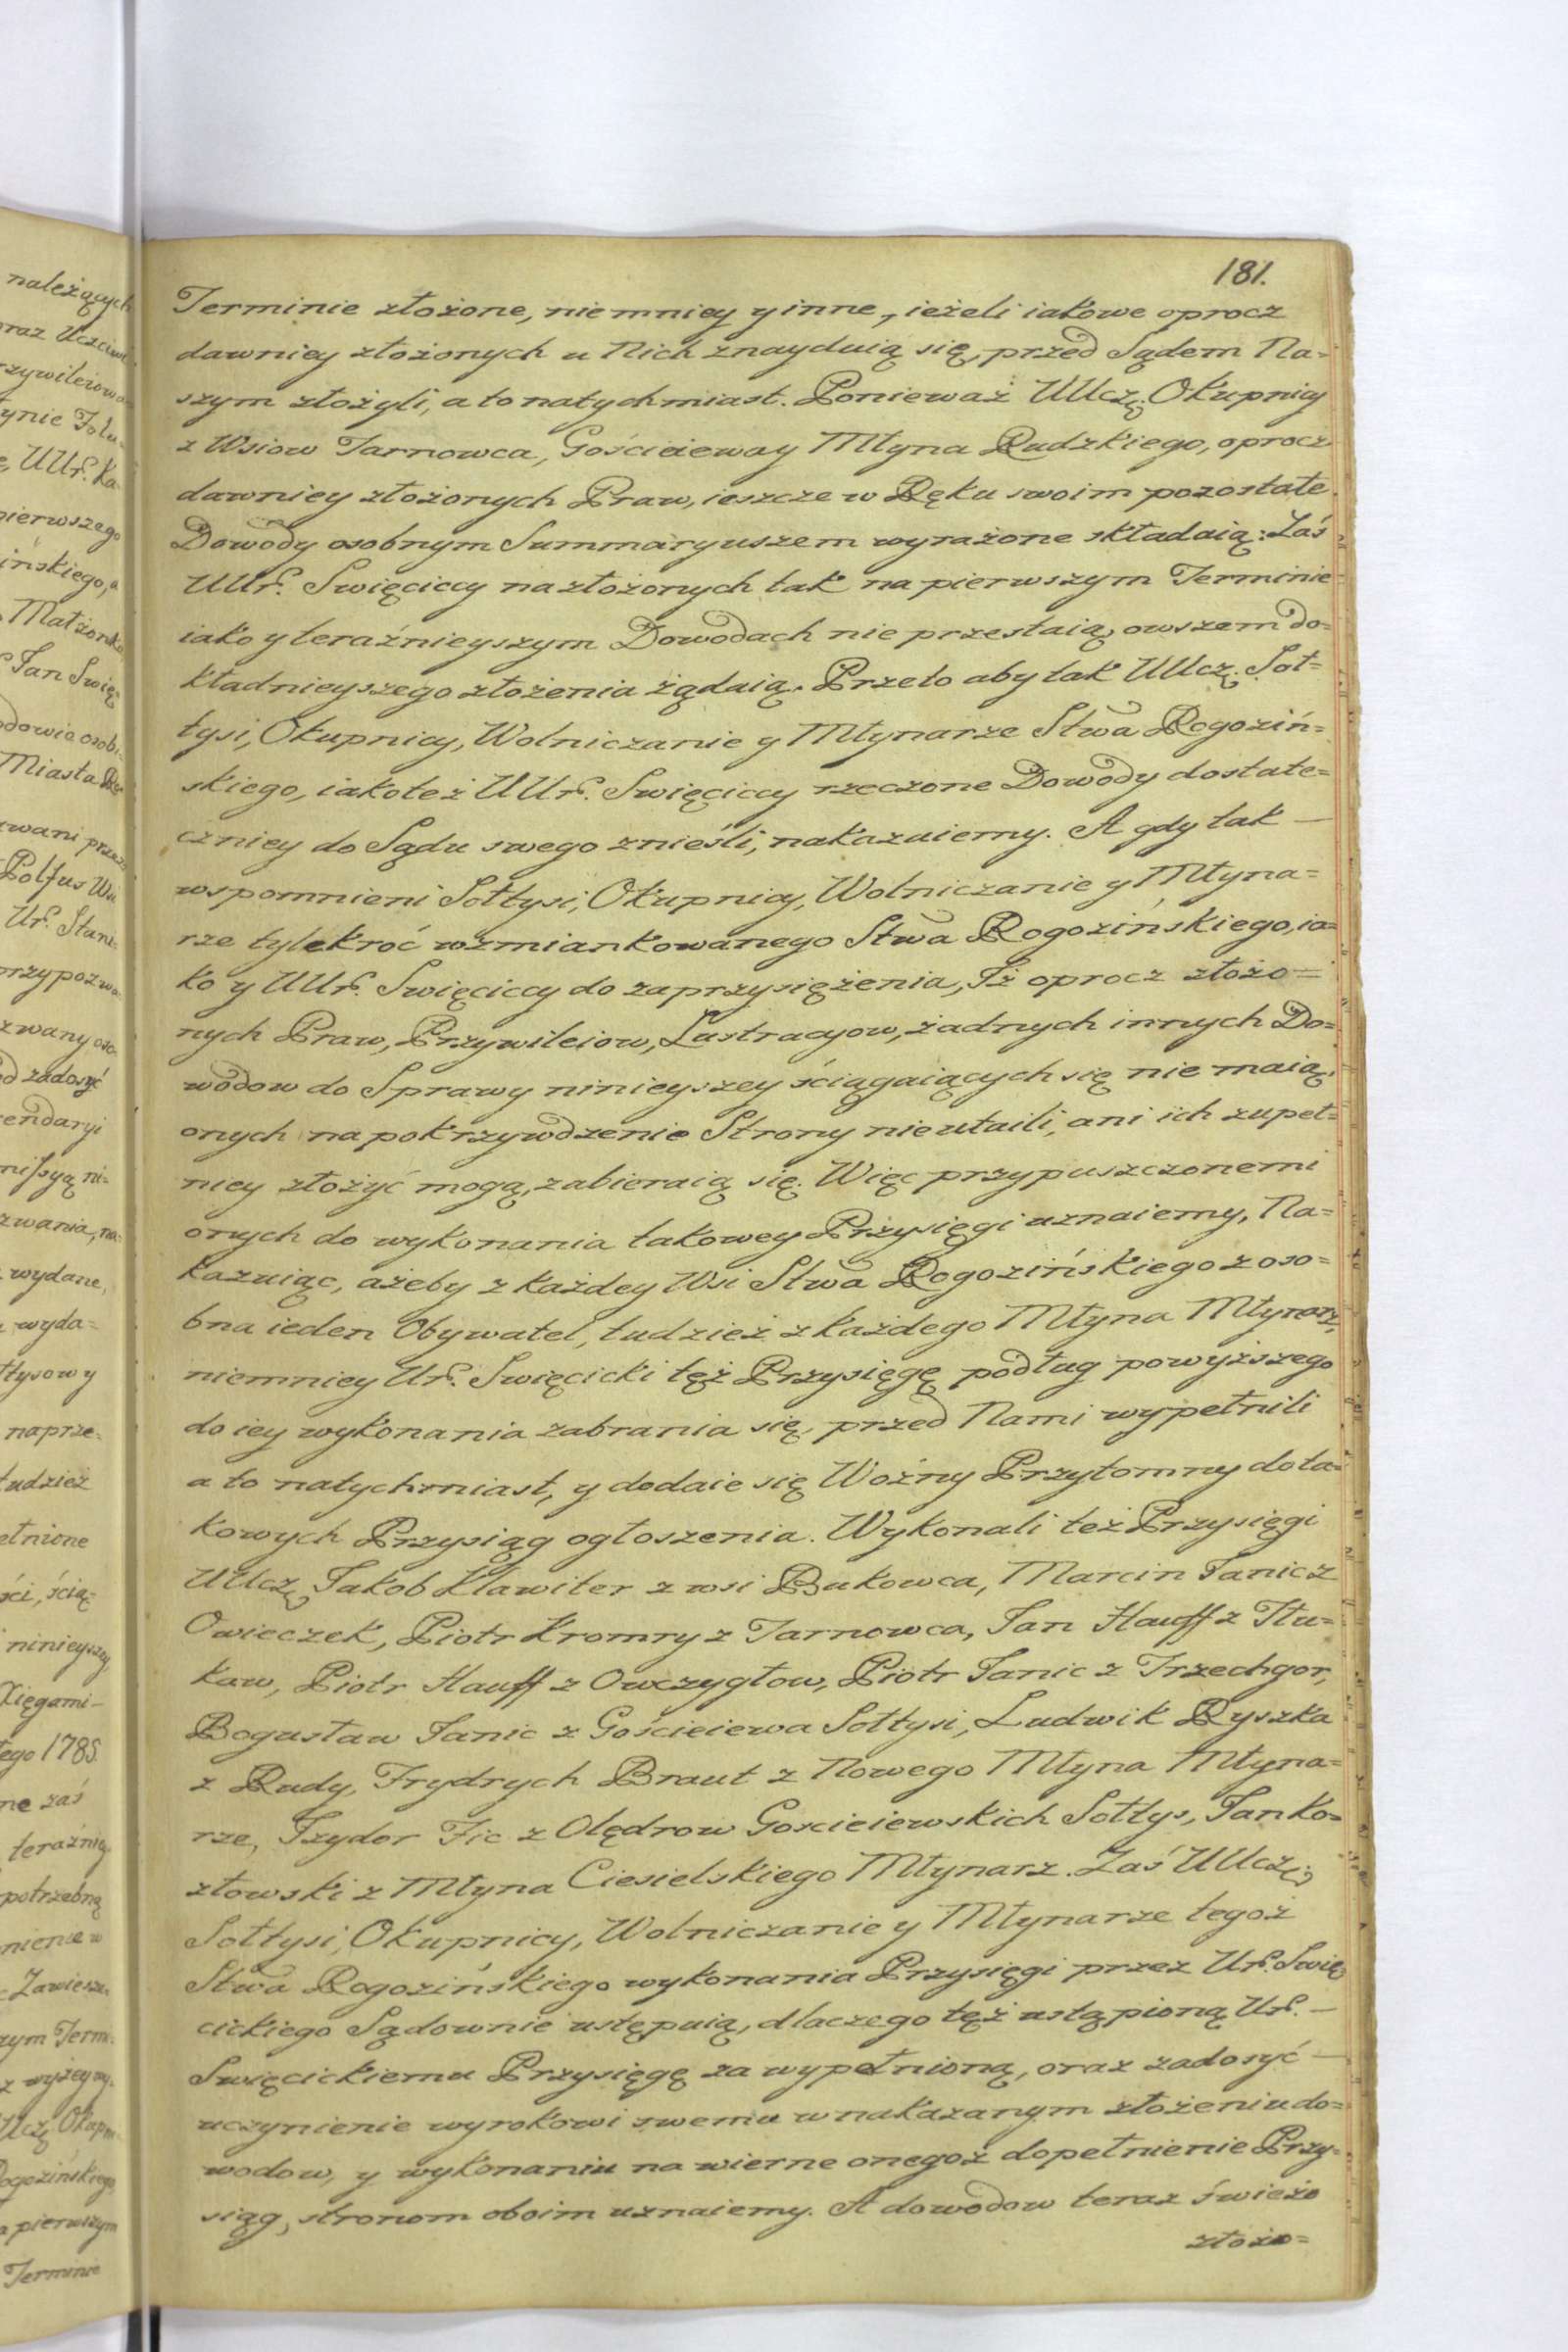 181.
Terminie złożone, niemniey y inne, ieżeli iakowe oprocz
dawniey złożonych u Nich znayduią się, przed Sądem Na=
szym złożyli, a to natychmiast. Ponieważ UUczę. Okupnicy
z Wsiow Tarnowca, Gościeiewa y Młyna Rudzkiego, oprocz
dawniey złożonych Praw, ieszcze w Ręku swoim pozostałe
Dowody osobnym Summaryuszem wyrażone składaią: Zaś
UUr. Swięciccy na złożonych tak na pierwszym Terminie
iako y teraźnieyszym Dowodach nie przestaią, owszem do=
kładnieyszego złożenia żądaią. Przeto aby tak UUczę. Soł=
tysi, Okupnicy, Wolniczanie y Młynarze Stwa Rogoziń=
skiego, iakoteż UUr. Swięciccy rzeczone Dowody dostate=
czniey do Sądu swego znieśli, nakazuiemy. A gdy tak —
wspomnieni Sołtysi, Okupnicy, Wolniczanie y Młyna=
rze tylekroć wzmiankowanego Stwa Rogozińskiego, ia=
ko y UUr. Swięciccy do zaprzysiężenia, Iż oprocz złożo=
nych Praw, Przywileiow, Lustracyow, żadnych innych Do=
wodow do Sprawy ninieyszey ściągaiących się nie maią,
onych na pokrzywdzenie Strony nie utaili, ani ich zupeł=
niey złożyć mogą, zabieraią się. Więc przypuszczonemi
onych do wykonania takowey Przysięgi uznaiemy, Na=
kazuiąc, ażeby z każdey Wsi Stwa Rogozińskiego z oso=
bna ieden Obywatel, tudzież z każdego Młyna Młynarz,
niemniey Ur. Swięcicki tęż Przysięgę podług powyższego
do iey wykonania zabrania się, przed Nami wypełnili
a to natychmiast, y dodaie się Woźny Przytomny do ta=
kowych Przysiąg ogłoszenia. Wykonali też Przysięgi
UUczę Jakob Klawiter z wsi Bukowca, Marcin Janic z
Owieczek, Piotr Kromry z Tarnowca, Jan Hauff z Tłu=
kaw, Piotr Hauff z Owczygłow, Piotr Janic z Trzechgor,
Bogusław Janic z Gościeiewa Sołtysi, Ludwik Ryszka
z Rudy, Frydrych Braut z Nowego Młyna Młyna=
rze, Izydor Fic z Olędrow Gościeiewskich Sołtys, Jan Ko=
złowski z Młyna Ciesielskiego Młynarz. Zaś UUczę.
Sołtysi, Okupnicy, Wolniczanie y Młynarze tegoż
Stwa Rogozińskiego wykonania Przysięgi przez Ur. Swię
cickiego Sądownie ustępuią, dlaczego tęż ustąpioną Ur. —
Swięcickiemu Przysięgę za wypełnioną, oraz zadosyć —
uczynienie wyrokowi swemu w nakazanym złożeniu do=
wodow, y wykonaniu na wierne onegoż dopełnienie Przy=
siąg, stronom oboim uznaiemy. A dowodow teraz świeżo
złożo=